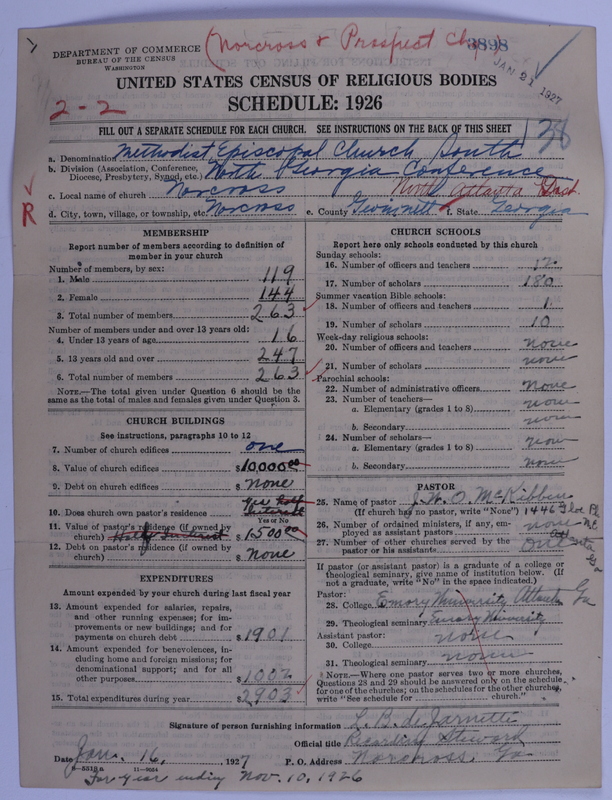 (Norcross & Prospect Chg.)
3898
JAN 21 1927
DEPARTMENT OF COMMERCE
BUREAU OF THE CENSUS
WASHINGTON
UNITED STATES CENSUS OF RELIGIOUS BODIES
2-2
SCHEDULE: 1926
FILL OUT A SEPARATE SCHEDULE FOR EACH CHURCH. SEE INSTRUCTIONS ON THE BACK OF THIS SHEET
a. Denomination Methodist Episcopal Church South
b. Division (Association, Conference, Diocese, Presbytery, Synod, etc.) North Georgia Conference
c. Local name of church Norcross North Atlanta Dist
R
d. City, town, village, or township, etc. Norcross e. County Gwinnett f. State Georgia
MEMBERSHIP
Report number of members according to definition of
member in your church
Number of members, by sex:
1. Male 119
2. Female 144
3. Total number of members 263
Number of members under and over 13 years old:
4. Under 13 years of age 16
5. 13 years old and over 247
6. Total number of members 263
NOTE.—The total given under Question 6 should be
same as the total of males and females given under Question 3.
CHURCH BUILDINGS
See instructions, paragraphs 10 to 12
7. Number of church edifices one
8. Value of church edifices $10,000 00
9. Debt on church edifices $ None
10. Does church own pastor's residence yes half Interest
Yes or No
11. Value of pastor's residence (if owned by
church) Half Interest $1500 00
12. Debt on pastor's residence (if owned by
church) $ None
EXPENDITURES
Amount expended by your church during last fiscal year
13. Amount expended for salaries, repairs,
and other running expenses; for im-
provements or new buildings; and for
payments on church debt $1901
14. Amount expended for benevolences, in-
cluding home and foreign missions; for
denominational support; and for all
other purposes $1002
15. Total expenditures during year $2903
CHURCH SCHOOLS
Report here only schools conducted by this church
Sunday schools:
16. Number of officers and teachers 12
17. Number of scholars 180
Summer vacation Bible schools:
18. Number of officers and teachers 1
19. Number of scholars 10
Week-day religious schools:
20. Number of officers and teachers none
21. Number of scholars none
Parochial schools:
22. Number of administrative officers None
23. Number of teachers—
a. Elementary (grades 1 to 8) none
b. Secondary none
24. Number of scholars—
a. Elementary (grades 1 to 8) none
b. Secondary none
PASTOR
25. Name of pastor J. W. O. McKibben
(If church has no pastor, write "None") 1446
26. Number of ordained ministers, if any, em-
ployed as assistant pastors none N.E.
27. Number of other churches served by the
pastor or his assistants One
If pastor (or assistant pastor) is a graduate of a college or
theological seminary, give name of institution below. (If
not a graduate, write "No" in the space indicated.)
Pastor:
28. College Emory University Atlanta Ga
29. Theological seminary Emory University
Assistant pastor:
30. College none
31. Theological seminary none
NOTE.—Where one pastor serves two or more churches,
Questions 28 and 29 should be answered only on the schedule
for one of the churches; on the schedules for the other churches,
write "See schedule for church."
Signature of person furnishing information L. B. deJarnette
Official title Recording Steward
Date Jan. 16, 1927 P. O. Address Norcross Ga
11-9024
For year ending Nov. 10, 1926